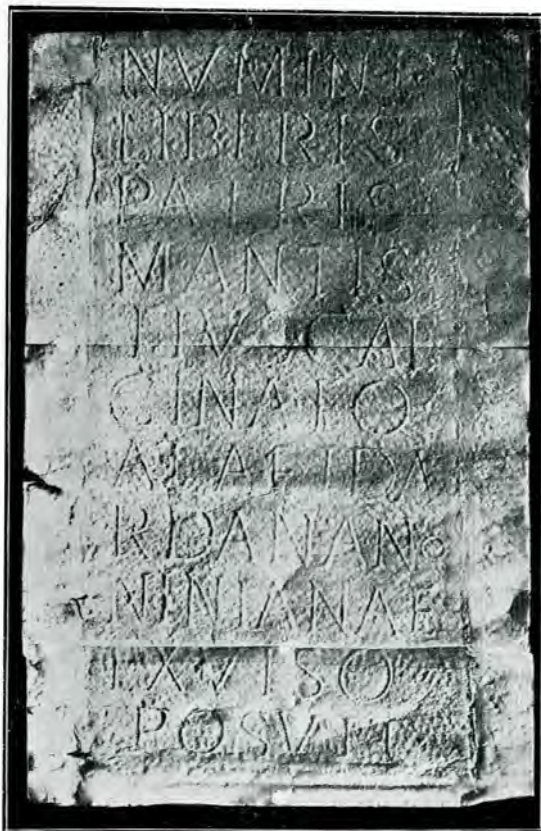 NVMINI
LIBERIS
PATRIS
MANTIS
TIVSCAE
CINATO
ALAEIDA
RDANANO
NINIANAE
EXVISO
POSVIT